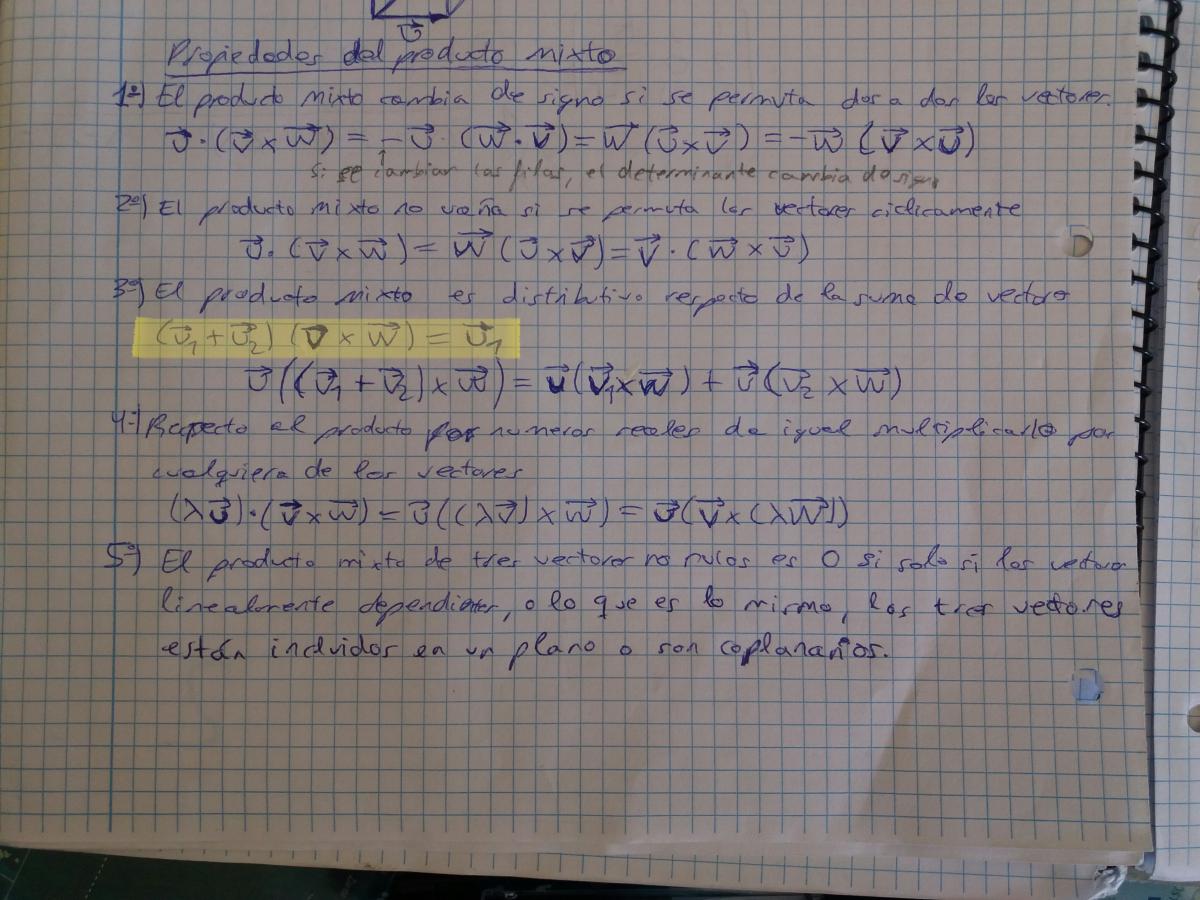 U⃗
Propiedades del producto mixto
1º) El producto mixto cambia de signo si se permuta dos a dos los vectores.
u⃗·(v⃗×w⃗) = -u⃗·(w⃗·v⃗) = w⃗(u⃗×v⃗) = -w⃗(v⃗×u⃗)
Si se cambian las filas, el determinante cambia de
2º) El producto mixto no varía si se permuta los vectores ciclicamente
u⃗·(v⃗×w⃗) = w⃗(u⃗×v⃗) = v⃗·(w⃗×u⃗)
3º) El producto mixto es distributivo respecto de la suma de vectores
(u⃗₁+u⃗₂)(v⃗×w⃗) = u⃗₁
u⃗((v⃗₁+v⃗₂)×w⃗) = u⃗(v⃗₁×w⃗) + u⃗(v⃗₂×w⃗)
4º) Respecto al producto por numeros reales da igual multiplicarlo por
cualquiera de los vectores
(λu⃗)·(v⃗×w⃗) = u⃗((λv⃗)×w⃗) = u⃗(v⃗×(λw⃗))
5º) El producto mixto de tres vectores no nulos es 0 si solo si los vectores
linealmente dependientes, o lo que es lo mismo, los tres vectores
están incluidos en un plano o son coplanarios.